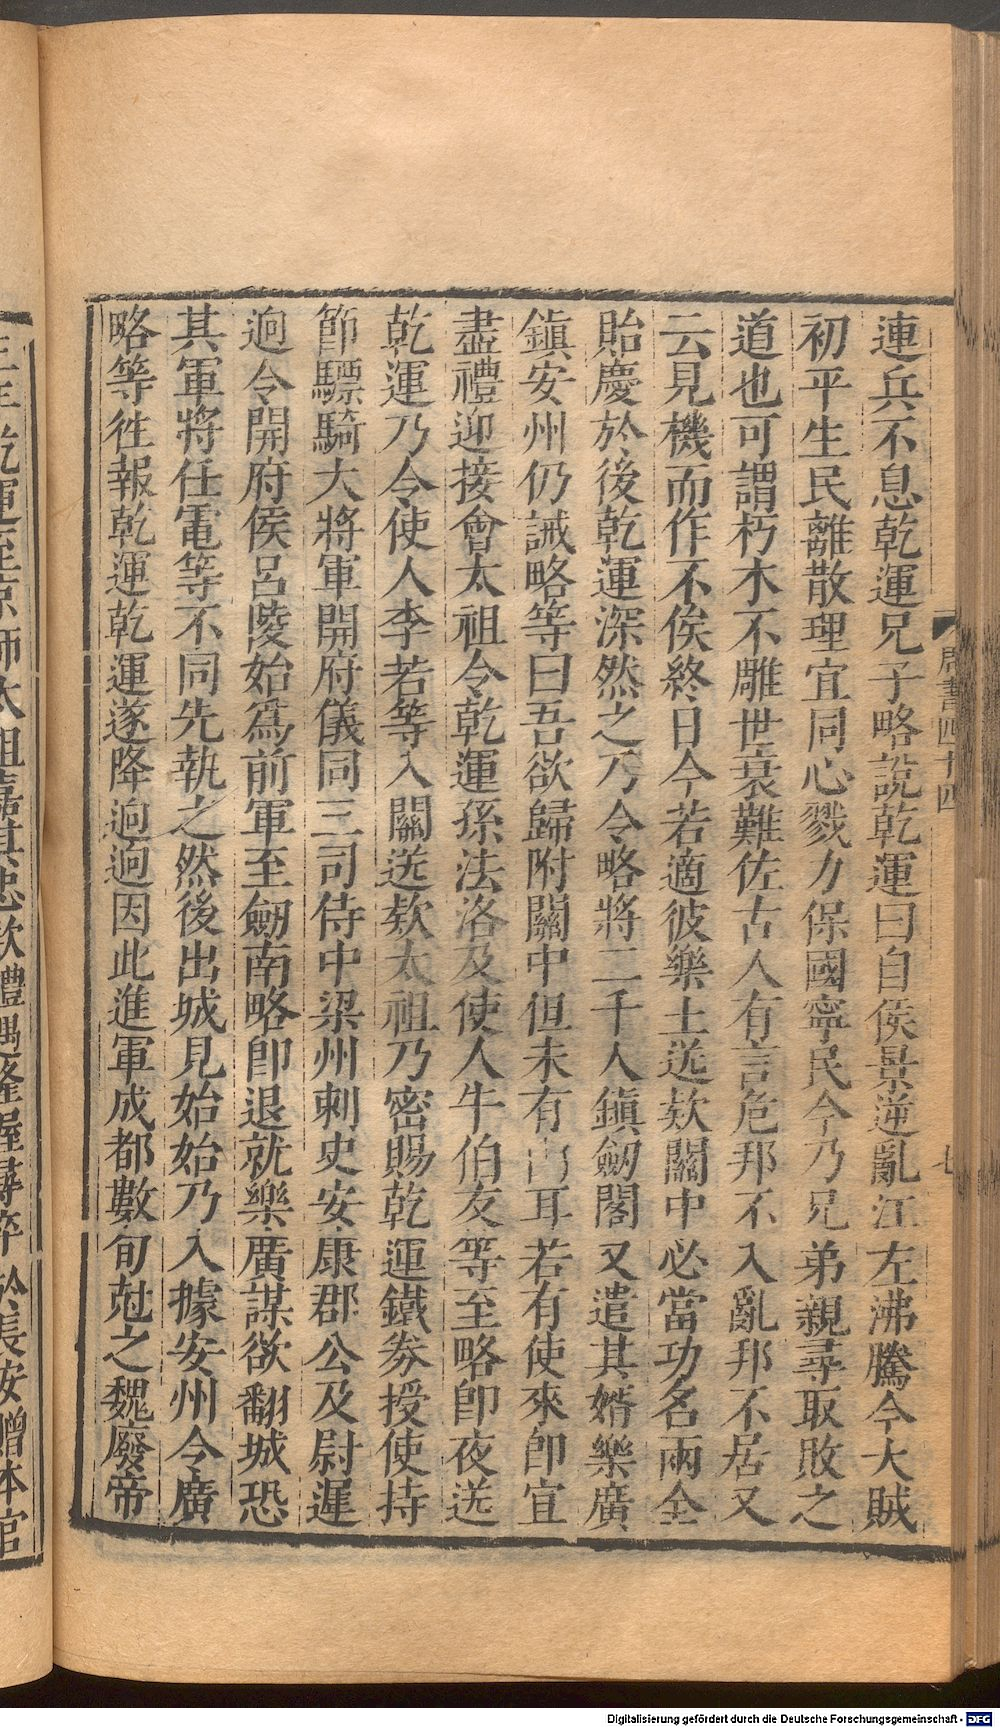 連兵不息乾運兄子略說乾運曰自侯景逆亂江左沸騰今大賊
初平生民離散理宜同心戮力保國寧民今乃兄弟親尋取敗之
道也可謂朽木不雕世衰難佐古人有言危邦不入亂邦不居又
云見機而作不俟終日今若適彼樂土送款關中必當功名兩全
貽慶於後乾運深然之乃令略將二千人鎮劒閣又遣其婿樂廣
鎮安州仍誡略等曰吾欲歸附關中但未有由耳若有使來即宜
盡禮迎接會太祖令乾運孫法洛及使人牛伯友等至略即夜送
乾運乃令使人李若等入關送款太祖乃密賜乾運鐵券授使持
節驃騎大將軍開府儀同三司侍中梁州刺史安康郡公及尉遲
迥令開府侯呂陵始爲前軍至劒南略即退就樂廣謀欲翻城恐
其軍將任電等不同先執之然後出城見始始乃入據安州令廣
略等徃報乾運乾運遂降迥迥因此進軍成都數旬尅之魏廢帝
周書四十四
七
三年乾運至京師太祖嘉其忠款禮遇隆渥尋卒於長安贈本官
Digitalisierung gefördert durch die Deutsche Forschungsgemeinschaft - DFG